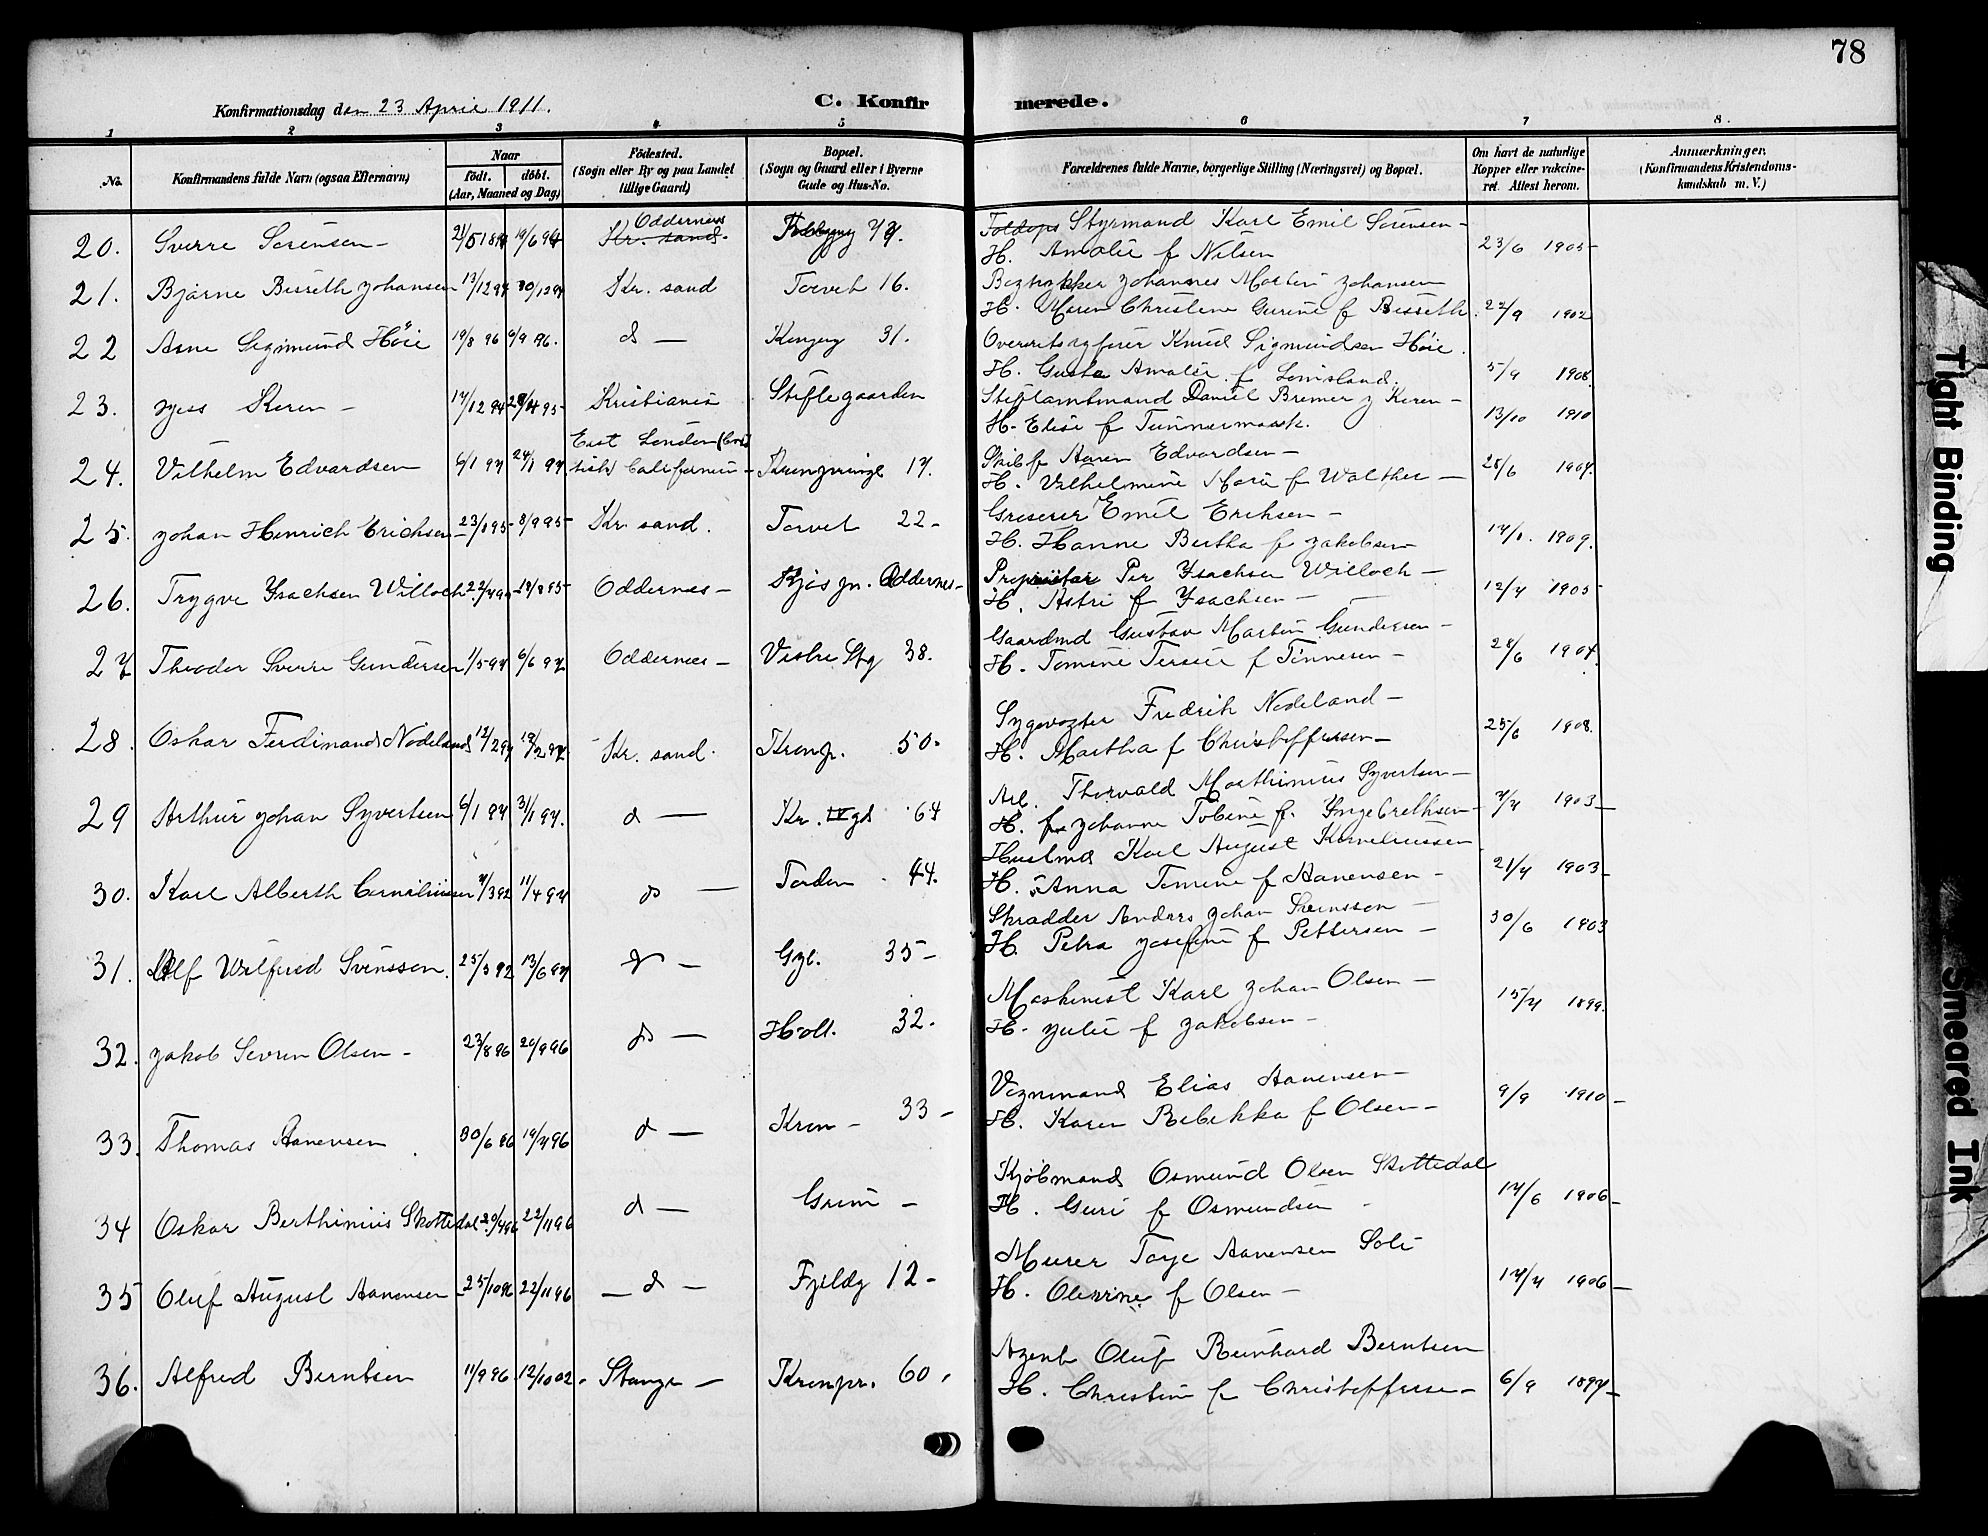 78
Konfirmationsdag den 23 April 1911.
C. Konfirmerede.
1 2 3 4 5 6 7 8.
No.
Konfirmandens fulde Navn (ogsaa Efternavn)
Naar
födt. döbt.
(Aar, Maaned og Dag)
Födested.
(Sogn eller By og paa Landet
tillige Gaard)
Bopæl.
(Sogn og Gaard eller i Byerne
Gade og Hus-No.
Forældrenes fulde Navne, borgerlige Stilling (Næringsvei) og Bopæl.
Om havt de naturlige
Kopper eller vakcine-
ret. Attest herom.
Anmærkninger.
(Konfirmandens Kristendoms-
kundskab m. V.)
Oddernes
20. Sverre Sörensen - 19/6 Kr. sand. Styrmand Karl Emil Sörensen -
H. Amalie f Nilsen 23/6 1905
21. Bjarne Bisseth Johansen 13/12 94 30/12 94 Kr. sand Torvet 16. Johannes Martin Johansen
H. Maren Christine Gurine f Bisseth. 22/9 1902
22 Arne Sigimund Höie 19/8 96 6/9 96. d — Kongeng 31. Overretssagförer Knud Sigmundsen Höie.
H. Amalie f 5/9 1908
23. Jess Keren - Kristiania Stiftsgaarden Stiftamtmand Daniel Bremer J Keren -
H. Elise f 13/10 1910
East London (
24. Vilhelm Edvardsen 6/1 97 24/1 97 Californien - 17. Skibsf Aanen Edvardsen -
H. Vilhelmine Marie f Walther — 28/6 1907.
25. Johan Henrich Erichsen 23/1 95 8/9 95 Kr. sand. Torvet 22 - Emil Eriksen -
H. Hanne Bertha f Jakobsen 1909.
26. Trygve Ysachsen Willoch Oddernes - Oddernes - Proprietær Per Ysachsen Willoch -
H. Astri f Ysachsen - 12/4 1905
27 Theodor Sverre Gundersen 1/5 97 6/6 97 Oddernes - Vestre Stg 38. Gaardmd Gustav Martin Gundersen -
H. Tomine f Tönnesen - 28/6 1907.
28. Oskar Ferdinand Nodeland 12/2 97 Kr. sand. Kronp. 50. Sygevogter Fredrik Nodeland -
H. Martha f Christoffersen - 25/6 1908.
29 Arthur Johan Syvertsen 6/1 97 31/1 97. d — Kr. IV gd 64 Arb. Thorvald Marthinius Syvertsen -
H. Johanne Tobine f. Yngebrethsen - 1903 -
30. Karl Alberth Cornéliussen 11/4 97 d — Torden 44. Husmd Karl August Korneliussen
H. Anna Tomine f Aanensen - 21/4 1903 -
31. Alf Wilfred Svensson. 13/6 97 d - Gyl. 35 - Skrædder Anders Johan Svensson -
H. Petra Josefine f Pettersen - 30/6 1903
32. Jakob Severin Olsen - 23/8 96 20/9 96 d — Holl. 32. Maskinist Karl Johan Olsen -
H. Julie f Jakobsen - 15/4 1899.
33. Thomas Aanensen 30/6 96 19/7 96 d — Kron - 33 - Vognmand Elias Aanensen -
H. Karen Rebekka f Olsen - 9/9 1910 -
34 Oskar Berthinius Skottedal 22/11 96 d — Grim - Kjöbmand Osmund Olsen Skottedal
H. Guri f Osmundsen 1906 -
35 Oluf August Aanensen - 25/10 96 22/11 96 - d - Fjeldg 12 - Murer Tarje Aanensen Soli
H. Olevine f Olsen - 1906 -
36. Alfred Berntsen 11/9 96 12/10 02. Stange - Kronpr. 60. Agent Oluf Reinhard Berntsen
H. Christine f Christoffersen - 6/9 1897 -
Tight Binding
Smeared Ink